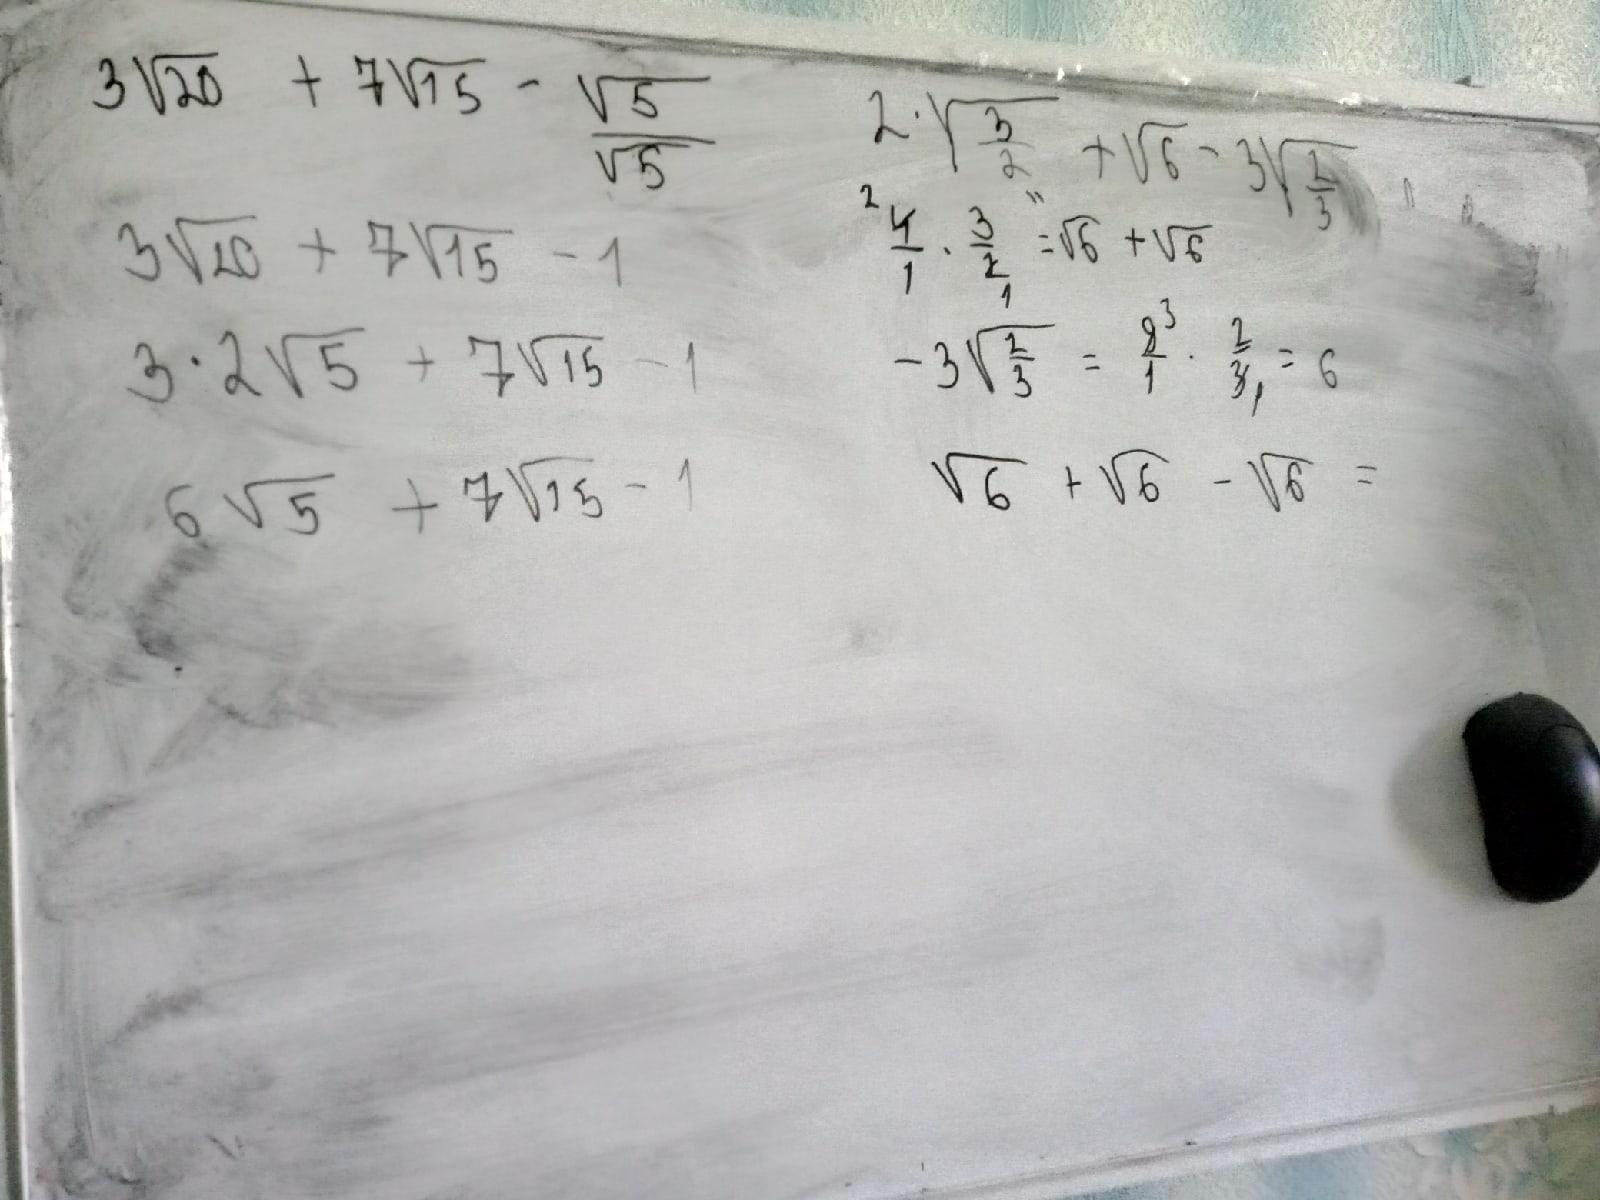 3√20 + 7√15 - √5/√5
3√20 + 7√15 - 1
3·2√5 + 7√15 - 1
6√5 + 7√15 - 1
2·√3/2 + √6 - 3√2/3
2 4/1 · 3/2 1 = √6 + √6
-3√2/3 = 9/1 3 · 2/3 1 = 6
√6 + √6 - √6 =